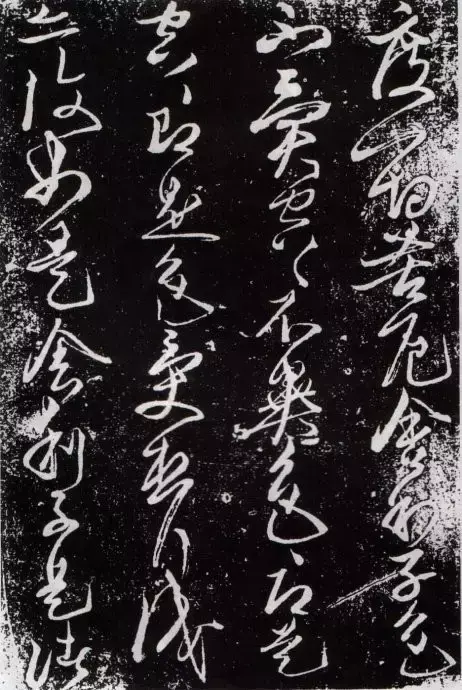 度一切苦厄舍利子色
不異空々不異色々即是
空々即是色受想行識
亦復如是舍利子是諸